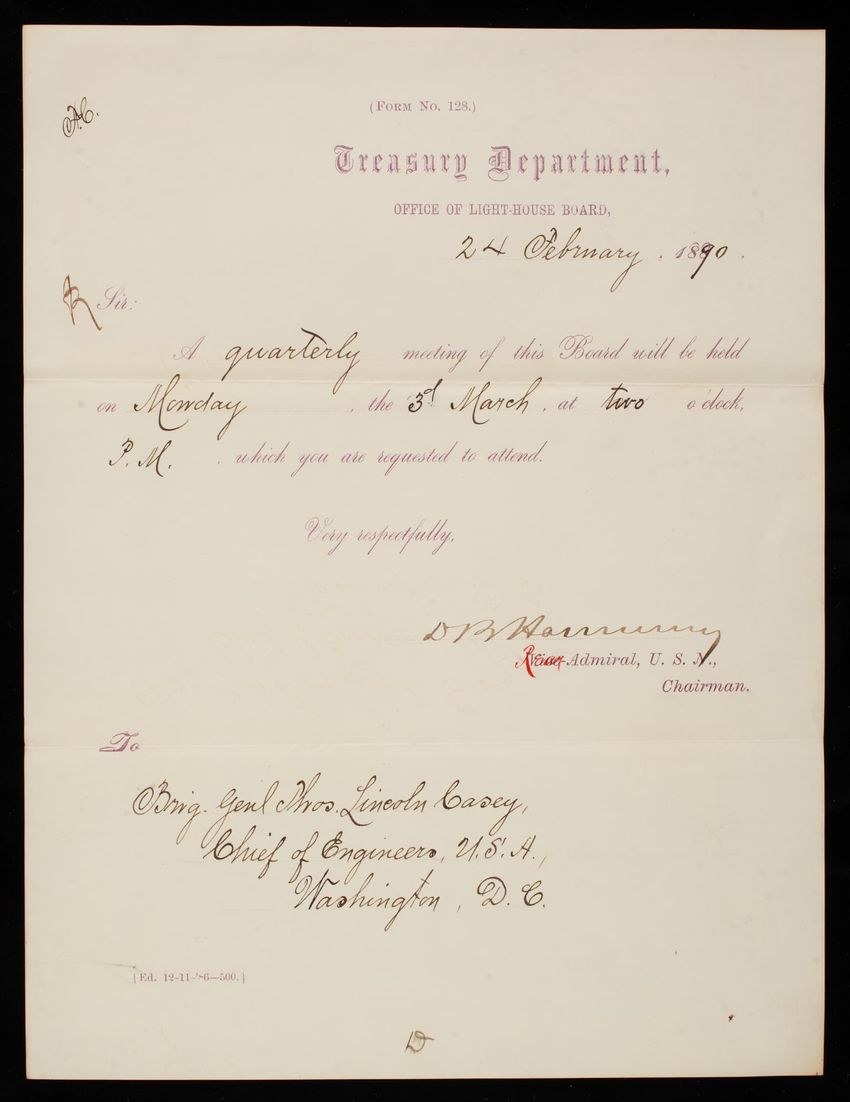 (Form No. 128.)
A.C.
Treasury Department,
OFFICE OF LIGHT-HOUSE BOARD,
24 February, 1890.
Sir:
A quarterly meeting of this Board will be held
on Monday, the 3d March, at two o'clock,
P. M., which you are requested to attend.
Very respectfully,
D B Harmony
Rear-Admiral, U. S. N.,
Chairman.
To
Brig. Genl Thos. Lincoln Casey,
Chief of Engineers, U.S.A.,
Washington, D. C.
[Ed. 12-11-'86—500.]